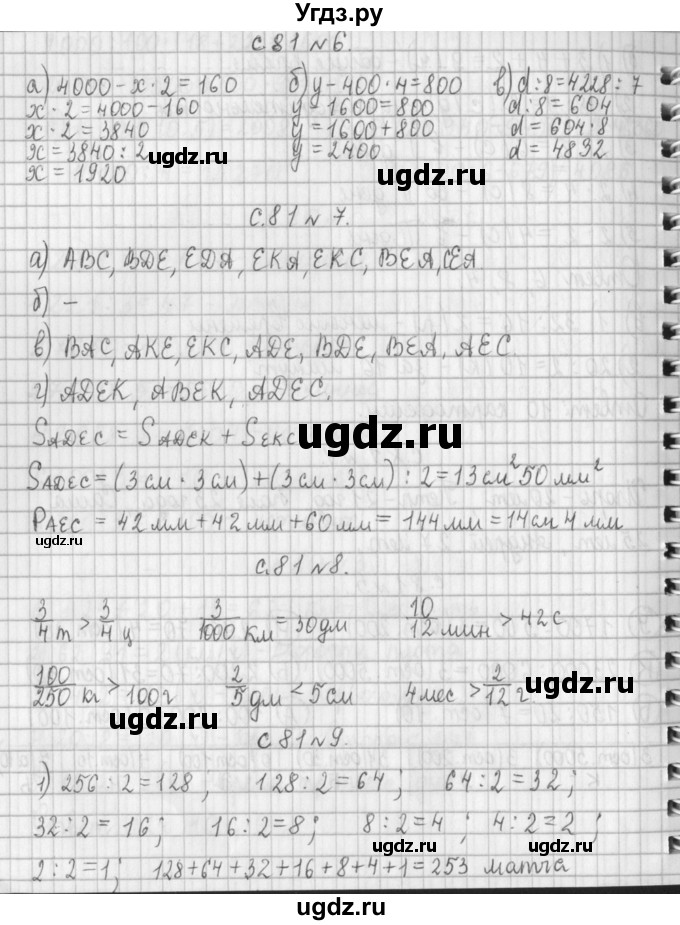 Угдз.ру
с.81 №6.
а) 4000 - x · 2 = 160 б) y - 400 · 4 = 800 в) d : 8 = 4228 : 7
x · 2 = 4000 - 160 y - 1600 = 800 d : 8 = 604
x · 2 = 3840 y = 1600 + 800 d = 604 · 8
x = 3840 : 2 y = 2400 d = 4832
x = 1920
ugdz.ru
ugdz.ru
ugdz.ru
с.81 № 7.
а) ABC, BDE, EDA, EKA, EKC, BEA, CEA
б) -
в) BAC, AKE, EKC, ADE, BDE, BEA, AEC.
г) ADEK, ABEK, ADEC.
S ADEC = S ADCK + S EKC
ugdz.ru
S ADEC = (3 см · 3 см) + (3 см · 3 см) : 2 = 13 см² 50 мм²
P AEC = 42 мм + 42 мм + 60 мм = 144 мм = 14 см 4 мм
ugdz.ru
с.81 №8.
3/4 т > 3/4 ц 3/1000 км = 30 дм 10/12 мин > 42 с
ugdz.ru
100/250 кг > 100 г 2/5 дм < 5 см 4 мес > 2/12 г.
ugdz.ru
ugdz.ru
с 81 №9.
1) 256 : 2 = 128; 128 : 2 = 64; 64 : 2 = 32;
32 : 2 = 16; 16 : 2 = 8; 8 : 2 = 4; 4 : 2 = 2;
ugdz.ru
ugdz.ru
2 : 2 = 1; 128 + 64 + 32 + 16 + 8 + 4 + 1 = 253 матча
ugdz.ru